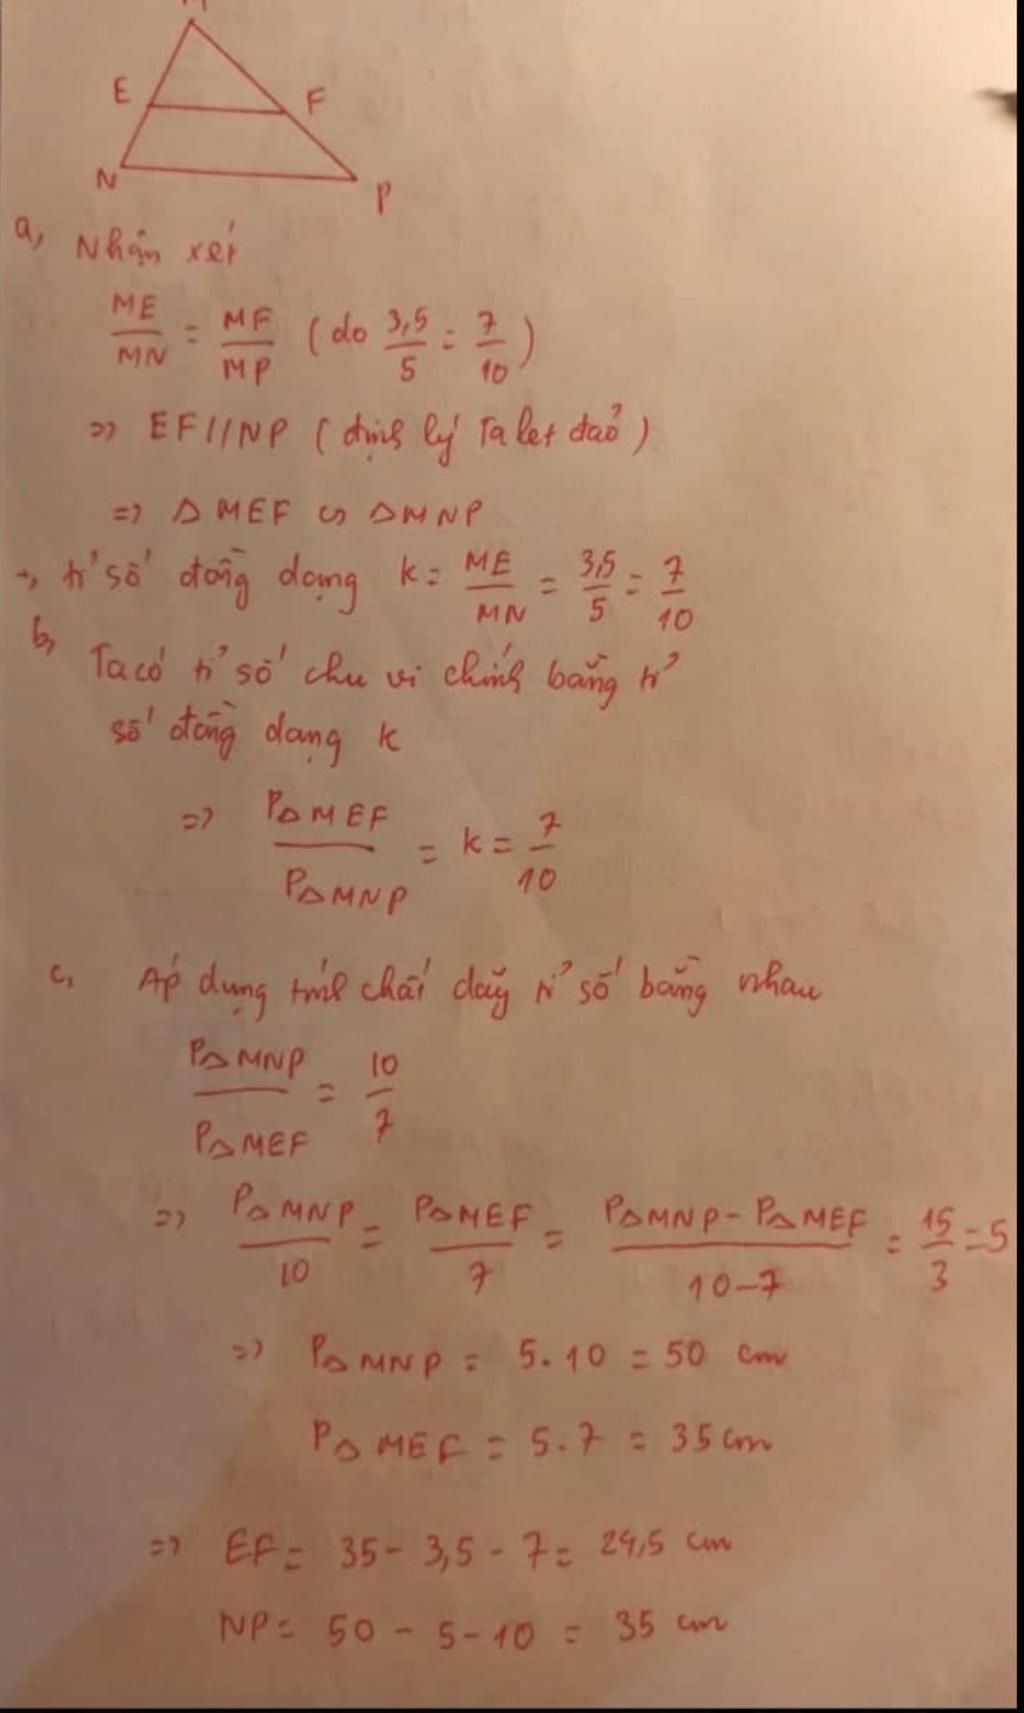 M
E
F
N
P
a, Nhận xét
ME/MN = MF/MP (do 3,5/5 = 7/10)
=> EF//NP (định lý Talet đảo)
=> Δ MEF ∽ ΔMNP
→, tỉ số đồng dạng k = ME/MN = 3,5/5 = 7/10
b, Ta có tỉ số chu vi chính bằng tỉ
số đồng dạng k
=> PΔMEF/PΔMNP = k = 7/10
c, Áp dụng tính chất dãy tỉ số bằng nhau
PΔMNP/PΔMEF = 10/7
=> PΔMNP/10 = PΔMEF/7 = PΔMNP - PΔMEF/10-7 = 15/3 = 5
=> PΔMNP = 5.10 = 50 cm
PΔMEF = 5.7 = 35 cm
=> EF = 35 - 3,5 - 7 = 24,5 cm
NP = 50 - 5 - 10 = 35 cm